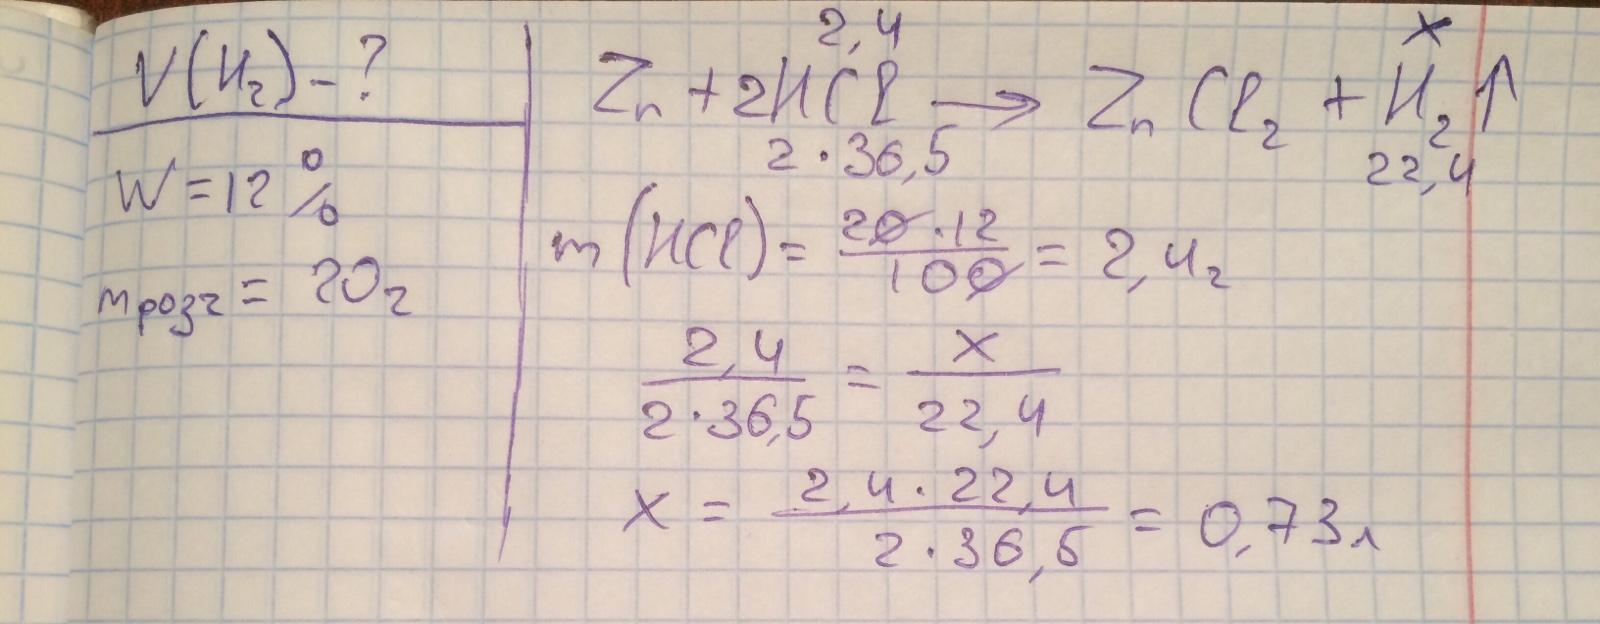 V(H₂) - ?
W = 12 %
m розч = 20 г
2,4 x
Zn + 2HCl → ZnCl₂ + H₂↑
2 · 36,5 22,4
m (HCl) = 20 · 12 / 100 = 2,4 г
2,4 / 2 · 36,5 = x / 22,4
x = 2,4 · 22,4 / 2 · 36,5 = 0,73 л